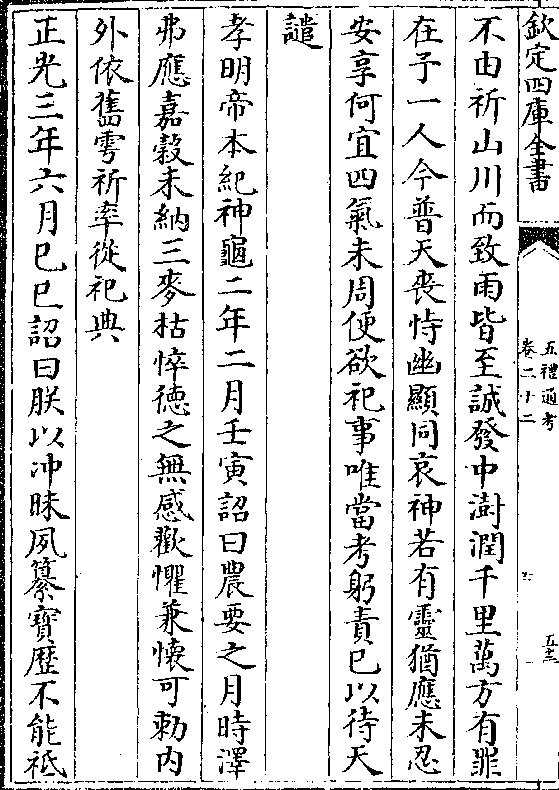 欽定四庫全書
五禮通考
卷二十二
五十三
不由祈山川而致雨皆至誠發中澍潤千里萬方有罪
在予一人今普天喪恃幽顯同哀神若有靈猶應未忍
安享何宜四氣未周便欲祀事唯當考躬責已以待天
譴
孝明帝本紀神龜二年二月壬寅詔曰農要之月時澤
弗應嘉穀未納三麥枯悴徳之無感歎懼兼懐可勅内
外依舊雩祈率從祀典
正光三年六月已巳詔曰朕以冲昧夙纂寶歴不能祗